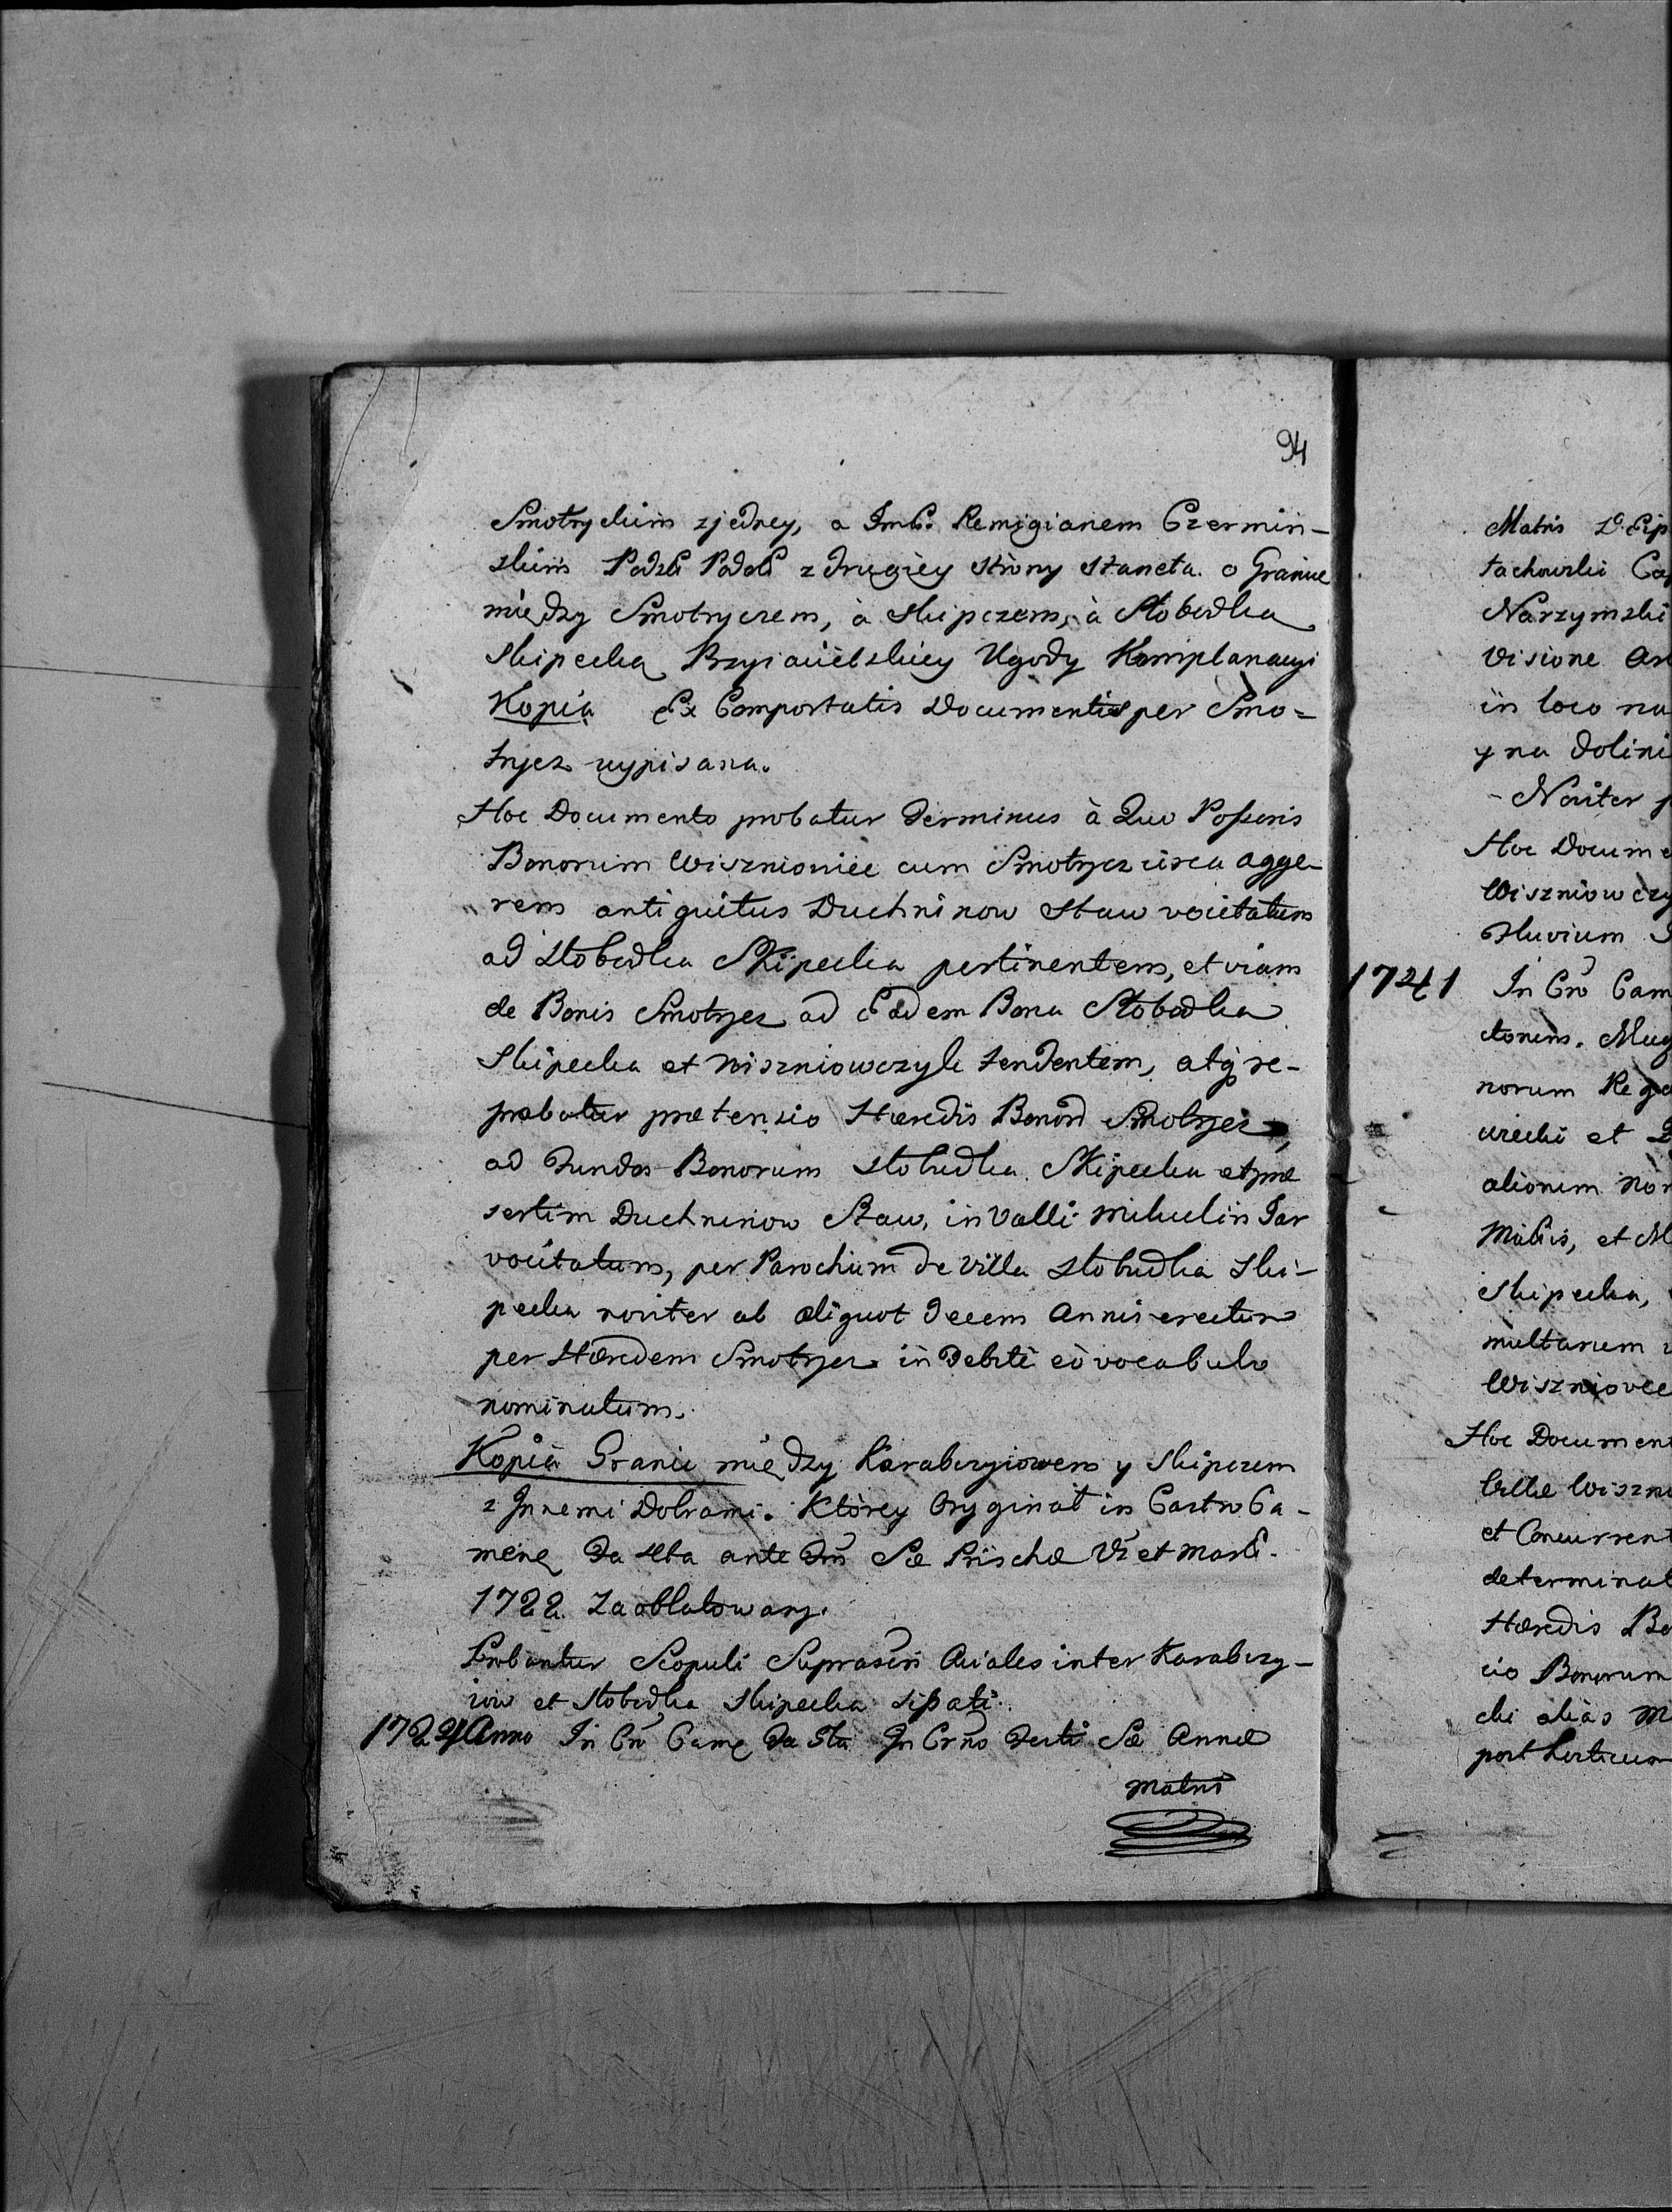 94
Smotryckim zjedney, a ImP. Remigianem Czermin-
skim Podst Podol z drugiey strony staneta o Granice
między Smotryczem, à Skipczem, à Słobodką
Skipecką Przyiacielskiey Ugody Komplanacyi
Kopia Ex Comportatis Documentis per Smo=
trycz wypisana.
Hoc Documento probatur Terminus à Quo Possoris
Bonorum Wiszniowiec cum Smotrycz circa agge-
rem antiquitus Duchninow Staw vocitatum
ad Słobodka Skipecka pertinentem, et viam
de Bonis Smotrycz ad Eadem Bona Słobodka
Skipecka et Wiszniowczyk tendentem, atq re-
probatur prætensio Hæredis Bonor Smotrycz,
ad Fundos Bonorum Słobudka Skipecka et præ
sertim Duchninow Staw, in Valli Mikulin Jar
vocitatum, per Parochum de Villa Słobudka Ski-
pecka noviter ab aliquot decem Annis erectum
per Hæredem Smotrycz indebite eò vocabulo
nominatum.
Kopia Granic między Karabczyiowem y Skipczem
z Jnnemi Dobrami. Którey Oryginał in Castro Ca-
mene
1722. Zaoblatowany.
Probantur Scopuli Aciales inter Karabczy-
iow et Słobodka Skipecka sipati.
1724 Anno In Cro Came In Cr̃no Festi Sæ Annæ
Matris
Matris
tachowski
Narzymski
visione
in loco
y na dolini
Noviter
Hoc Docume
Wiszniowczy
Fluvium
1741 In Cro Cam
ctorem.
norum
wiecki et
alionem
et
Skipecka,
multarum
Wisznio
Hoc Document
Villæ Wiszn
et Concurrent
determinat
Hæredis Bo
cio Bonorum
cki aliàs M
post